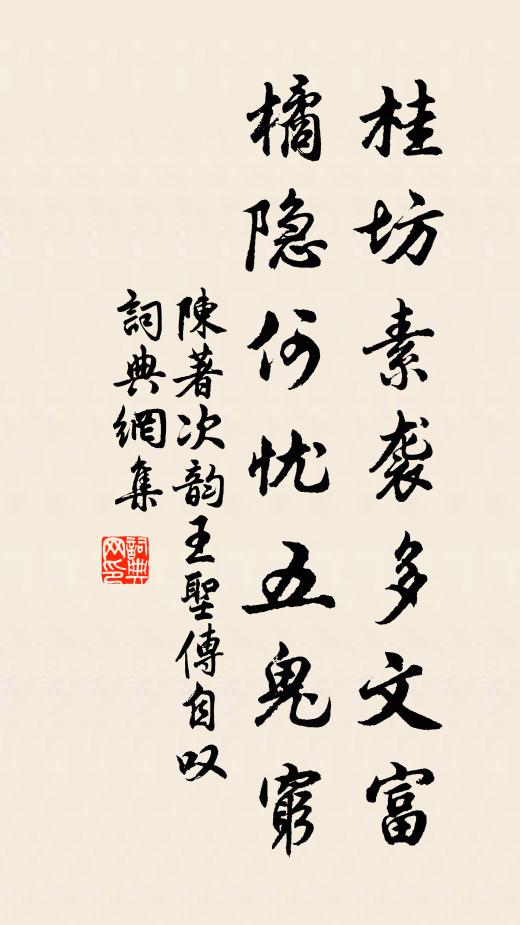 桂坊素袭多文富
橘隐何忧五鬼穷
陳著次韵王聖傳自叹
詞典網集
詞典网印